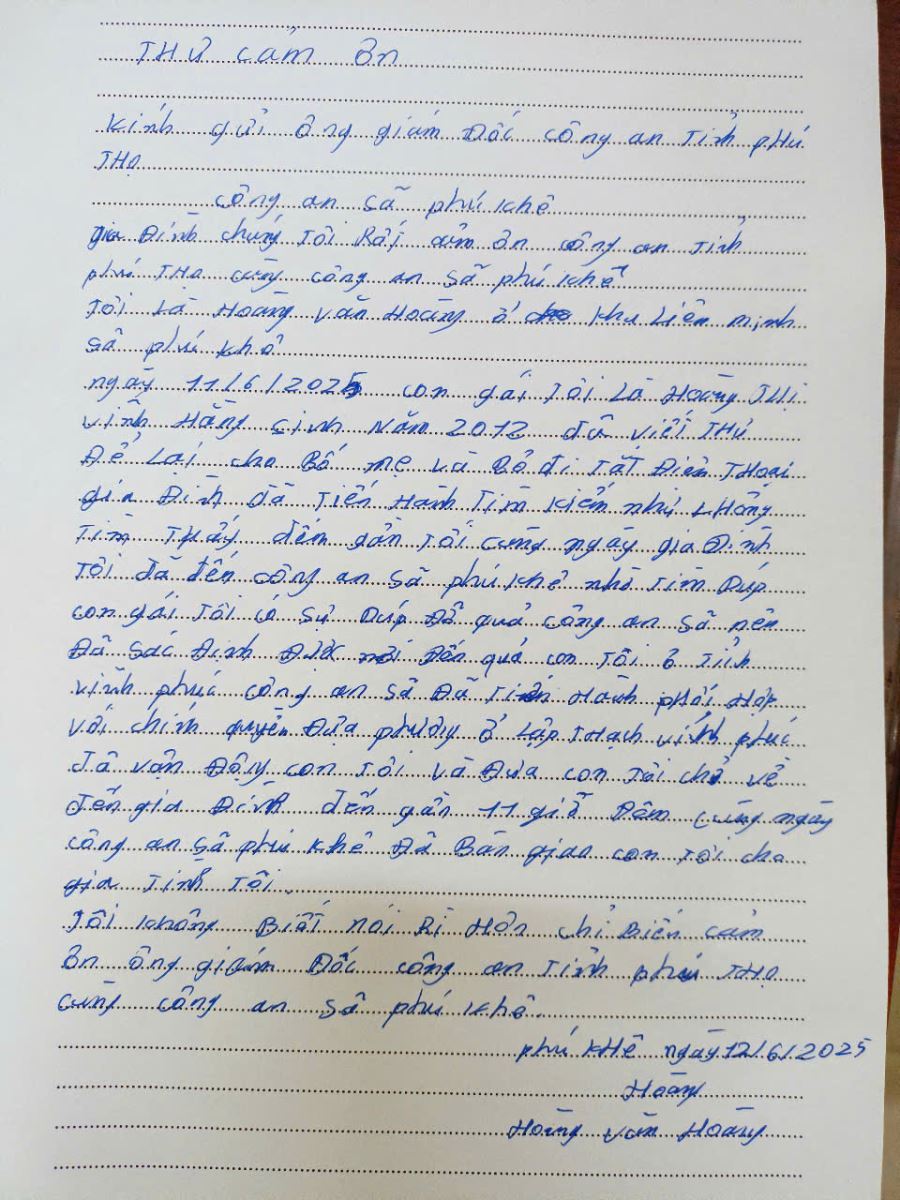 THƯ cảm ơn
Kính gửi ông giám Đốc công an Tỉnh phú
THọ
công an sã phú khê
gia Đình chúng Tôi Rất cảm ơn công an Tỉnh
phú THọ cùng công an sã phú khê
Tôi Là Hoàng văn Hoàng ở khu Liên minh
sã phú khê
ngày 11/6/2025 con gái Tôi Là Hoàng THị
vinh Hằng sinh Năm 2012 đã viết THư
Để Lại cho Bố mẹ và Bỏ đi Tắt Điện THoại
gia Đình đã Tiến Hành Tìm kiếm như không
Tìm THấy đếm gần Tối cùng ngày gia Đình
Tôi đã đến công an sã phú khê nhờ Tìm Dúp
con gái Tôi có sự Dúp Đỡ quả công an sã nên
Đã sác Định Được Đến quả con Tôi ở Tỉnh
vĩnh phúc công an sã Đã Tiến Hành phối Hợp
với chính quyền Đựa phương ở Lập THạch vĩnh phúc
đã vận Động con Tôi và Đưa con Tôi chở về
đến gia Đình đến gần 11 giờ Đêm cùng ngày
công an sã phú khê Đã Bàn giao con Tôi cho
gia Tình Tôi.
Tôi không Biết nói Rì Hơn chỉ Biến cảm
ơn ông giám Đốc công an Tỉnh phú THọ
cùng công an sã phú khê.
phú KHê ngày 12/6/2025
Hoàng
Hoàng văn Hoàng